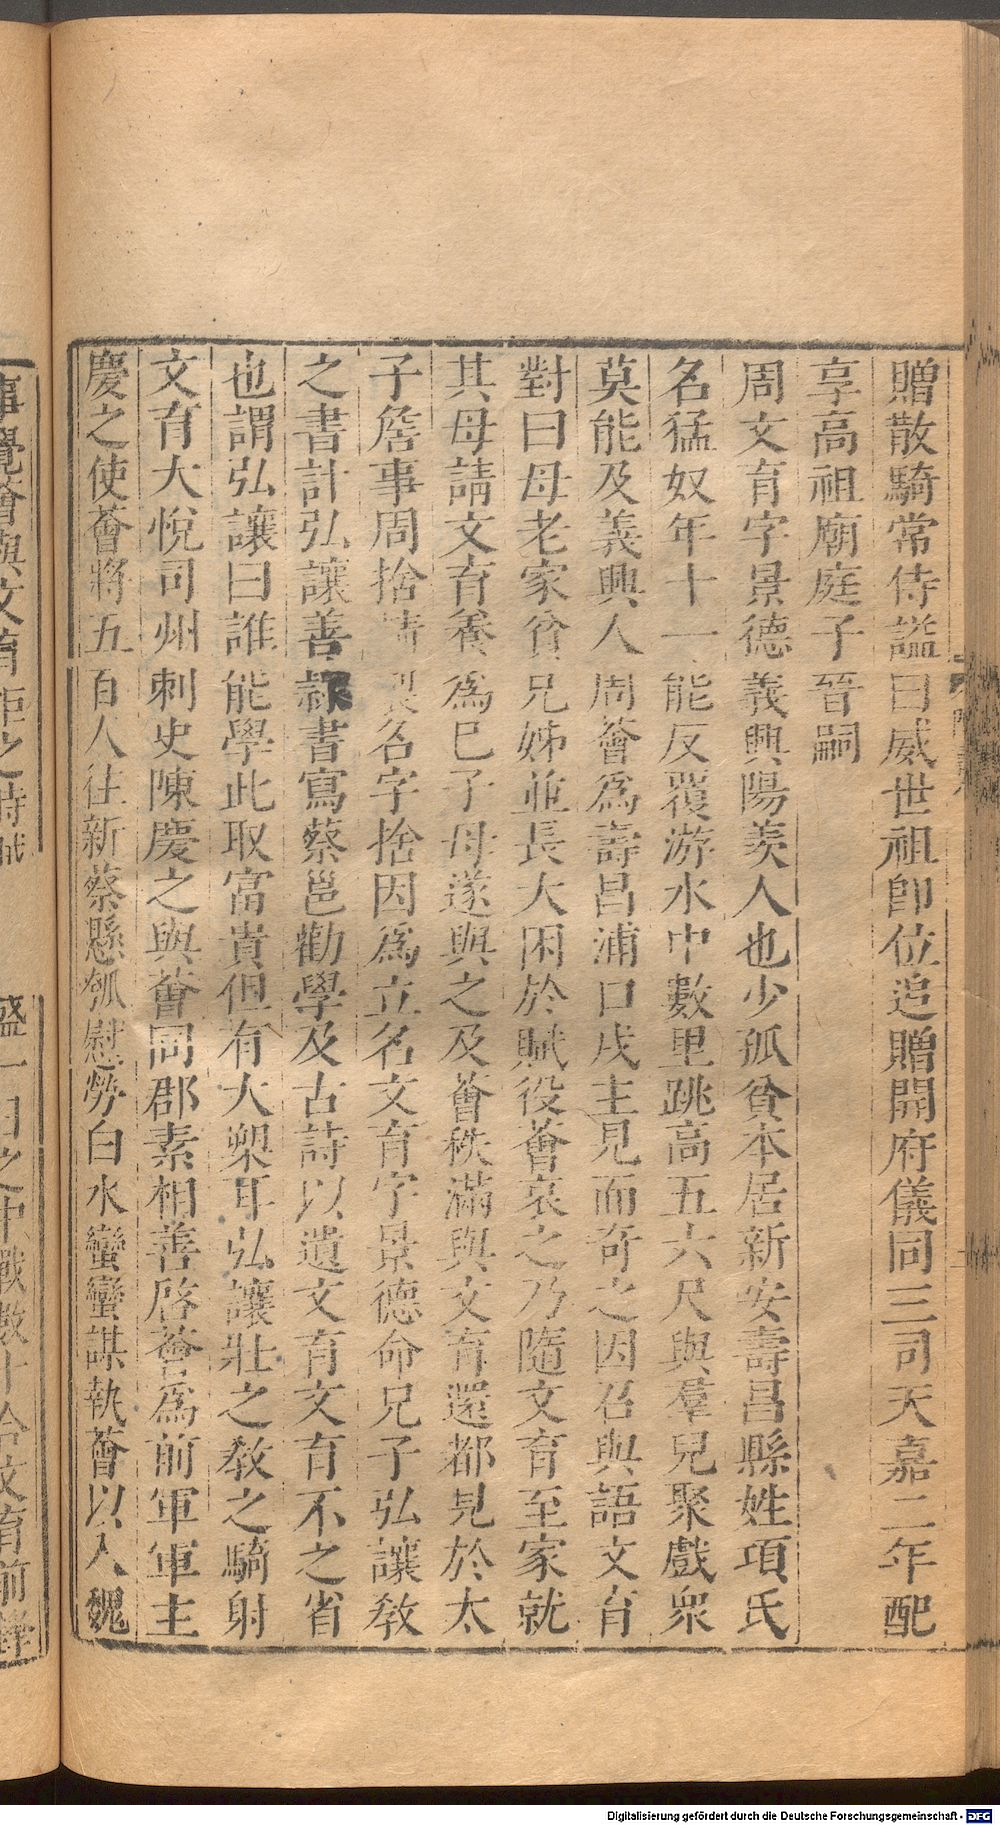 贈散騎常侍諡曰威世祖卽位追贈開府儀同三司天嘉二年配
享高祖廟庭子晉嗣
周文育字景德義興陽羨人也少孤貧本居新安壽昌縣姓項氏
名猛奴年十一能反覆游水中數里跳高五六尺與羣兒聚戲衆
莫能及義興人周薈爲壽昌浦口戍主見而奇之因召與語文育
對曰母老家貧兄姊並長大困於賦役薈哀之乃隨文育至家就
其母請文育養爲已子母遂與之及薈秩滿與文育還都見於太
子詹事周捨請名字捨因爲立名文育字景德命兄子弘讓敎
之書計弘讓善隸書寫蔡邕勸學及古詩以遺文育文育不之省
也謂弘讓曰誰能學此取富貴但有大槊耳弘讓壯之敎之騎射
文育大悅司州刺史陳慶之與薈同郡素相善啓薈爲前軍軍主
慶之使薈將五百人往新蔡懸瓠慰勞白水蠻蠻謀執薈以入魏
事覺薈與文育拒之時賊盛一日之中戰數十合文育前鋒
Digitalisierung gefördert durch die Deutsche Forschungsgemeinschaft - DFG